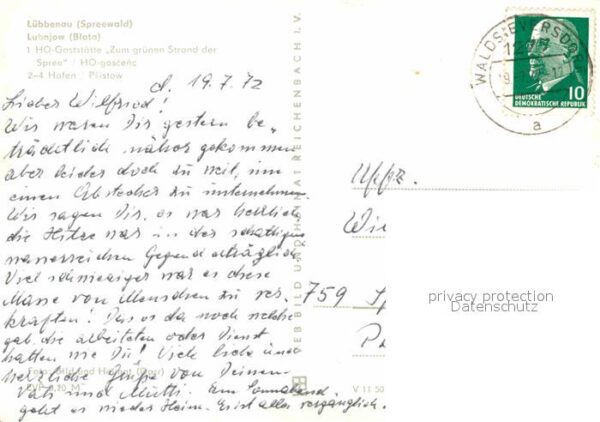 Lübbenau (Spreewald)
Lubnjow (Błota)
1 HO-Gaststätte „Zum grünen Strand der
Spree" / HO-gosćeńc
2–4 Hafen / Pśistow
d. 19.7.72
Lieber Wilfried!
Wir waren Dir gestern be-
trächtlich näher gekommen
aber leider doch zu weit, um
einen Abstecher zu unternehmen.
Wir sagen Dir, es war herrlich
die Hitze war in der schattigen
wasserreichen Gegend erträglich.
Viel schwieriger war es diese
Masse von Menschen zu ver-
kraften! Das es da noch welche
gab, die arbeiteten oder Dienst
hatten wie Du! Viele liebe und
herzliche Grüße von Deinem
Vati und Mutti. Am Sonnabend
geht es wieder Heim. Es ist alles vergänglich.
Foto: Bild und Heimat
EVP 0,20 M
V 11 50
VEB BILD UND HEIMAT REICHENBACH I. V.
WALDSIEVERSDORF
a
10
DEUTSCHE
DEMOKRATISCHE REPUBLIK
Uffz.
Wi
759 Sp
privacy protection
Datenschutz